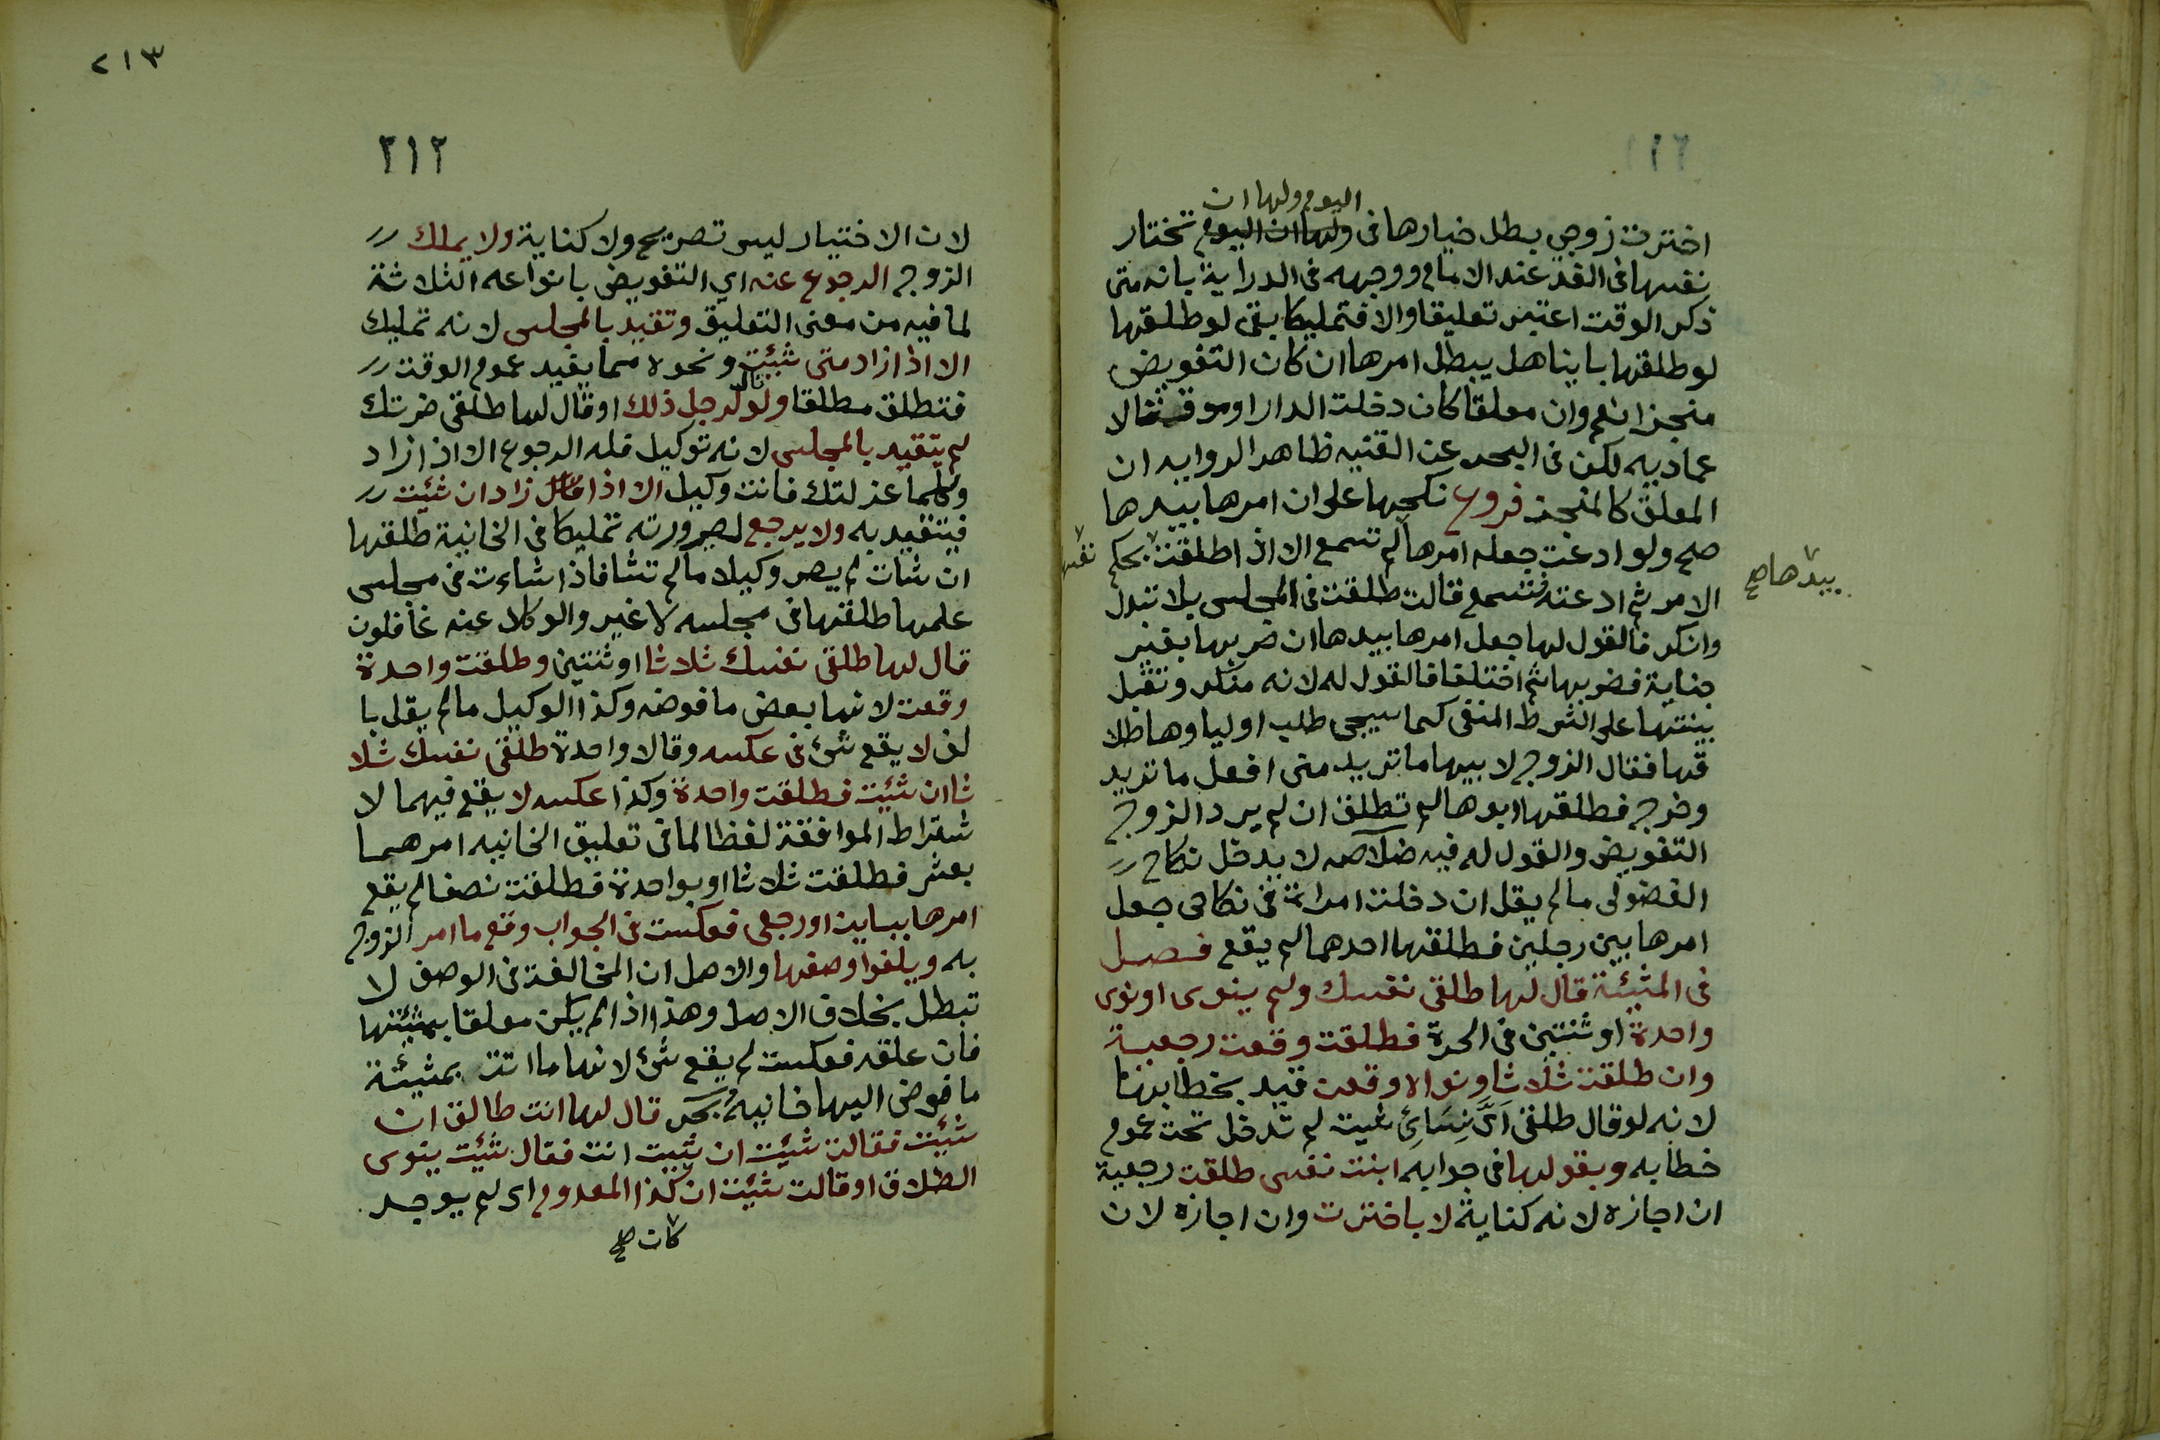 اليوم ولها ان
اخترت زوجي بطل خيارها في ولها ان اليوم تختار
نفسها في الغد عند الامام ووجهه في الدراية بانه متى
ذكر الوقت اعتبر تعليقا والا فتمليكا بقى لو طلقها
لو طلقها باينا هل يبطل امرها ان كان التفويض
منجزا نعم وان معلقا كان دخلت الدار او موقتا لا
عماديه لكن في البحر عن القنيه ظاهر الروايه ان
المعلق كالمنجز فروع نكحها على ان امرها بيدها
صح ولو ادعت جعله امرها لم تسمع الا اذا طلقت بحكم
نفسها
بيدها صح
الامر ثم ادعته فتسمع قالت طلقت في المجلس بلا تبدل
وانكر فالقول لها جعل امرها بيدها ان ضربها بغير
جناية فضربها ثم اختلفا فالقول له لانه منكر وتقبل
بينتها على الشرط المنفى كما سيجى طلب اولياوها طلا
قها فقال الزوج لابيها ما تريد منى افعل ما تريد
وخرج فطلقها ابوها لم تطلق ان لم يرد الزوج
التفويض والقول له فيه خلاصه لا يدخل نكاح
الفضولى ما لم يقل ان دخلت امراة في نكاحى جعل
امرها بين رجلين فطلقها احدهما لم يقع فصل
في المشيئة قال لها طلقى نفسك ولم ينوى او نوى
واحدة او ثنتين في الحرة فطلقت وقعت رجعية
وان طلقت ثلاثا ونواه وقعت قيد بخطابها
لانه لو قال طلقى اى نسائى شيت لم تدخل تحت عموم
خطابه وبقولها في جوابه ابنت نفسى طلقت رجعية
ان اجازه لانه كناية لا باخترت وان اجازه لان
٢١٣
٢١٢
لان الاختيار ليس تصريح ولا كناية ولا يملك
الزوج الرجوع عنه اي التفويض بانواعه الثلاثة
لما فيه من معنى التعليق وتقيد بالمجلس لانه تمليك
الا اذا زاد متى شئت ونحوه مما يفيد عموم الوقت
فتطلق مطلقا ولو قال لرجل ذلك او قال لها طلقى ضرتك
لم يتقيد بالمجلس لانه توكيل فله الرجوع الا اذا زاد
وكلما عزلتك فانت وكيل الا اذا زاد ان شئت
فيتقيد به ولا يرجع لصيرورته تمليكا في الخانية طلقها
ان شات لم يصر وكيلا ما لم تشا فاذا شاءت في مجلس
علمها طلقها في مجلسه لا غير والوكلا عنه غافلون
قال لها طلقى نفسك ثلاثا او ثنتين وطلقت واحدة
وقعت لانها بعض ما فوضه وكذا الوكيل ما لم يقل با
لف لا يقع شئ في عكسه وقالا واحدة طلقى نفسك ثلا
ثا ان شئت فطلقت واحدة وكذا عكسه لا يقع فيهما لا
شتراط الموافقة لفظا لما في تعليق الخانيه امرهما
بعشر فطلقت ثلاثا او بواحدة فطلقت نصفا لم يقع
امرها بباين او رجعى فعكست في الجواب وقع ما امر الزوج
به ويلغوا وصفها والاصل ان المخالفة في الوصف لا
تبطل بخلاف الاصل وهذا اذا لم يكن معلقا بمشيئتها
فان علقه فعكست لم يقع شئ لانها ما اتت بمشيئة
ما فوض اليها خانيه بحر قال لها انت طالق ان
شئت فقالت شئت ان شيت انت فقال شئت ينوى
الطلاق او قالت شئت ان كذا المعدوم اى لم يوجد
كان صح